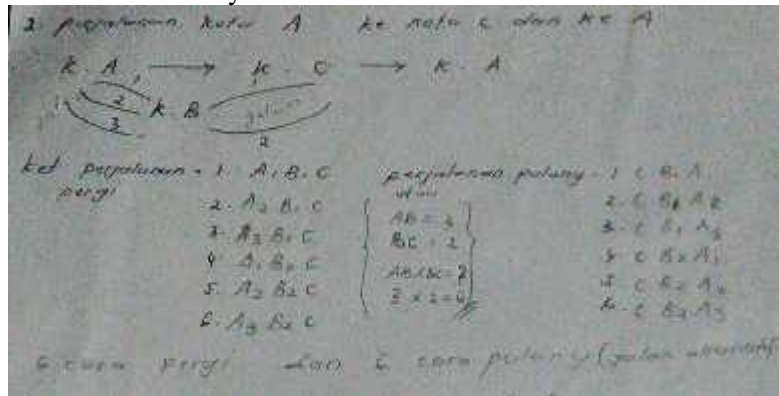 2. perjalanan kota A ke kota C dan ke A
K. A → K. C → K. A
1
2 K. B jalan
3
2
ket perjalanan = 1. A1 B1 C
pergi
2. A2 B1 C
3. A3 B1 C
4 A1 B2 C
5. A2 B2 C
6. A3 B2 C
atau
AB = 3
BC = 2
AB x BC = ?
3 x 2 = 6
perjalanan pulang = 1 C B1 A1
2. C B1 A2
3. C B1 A3
4 C B2 A1
5 C B2 A2
6. C B2 A3
6 cara pergi dan 6 cara pulang (jalan alternatif)